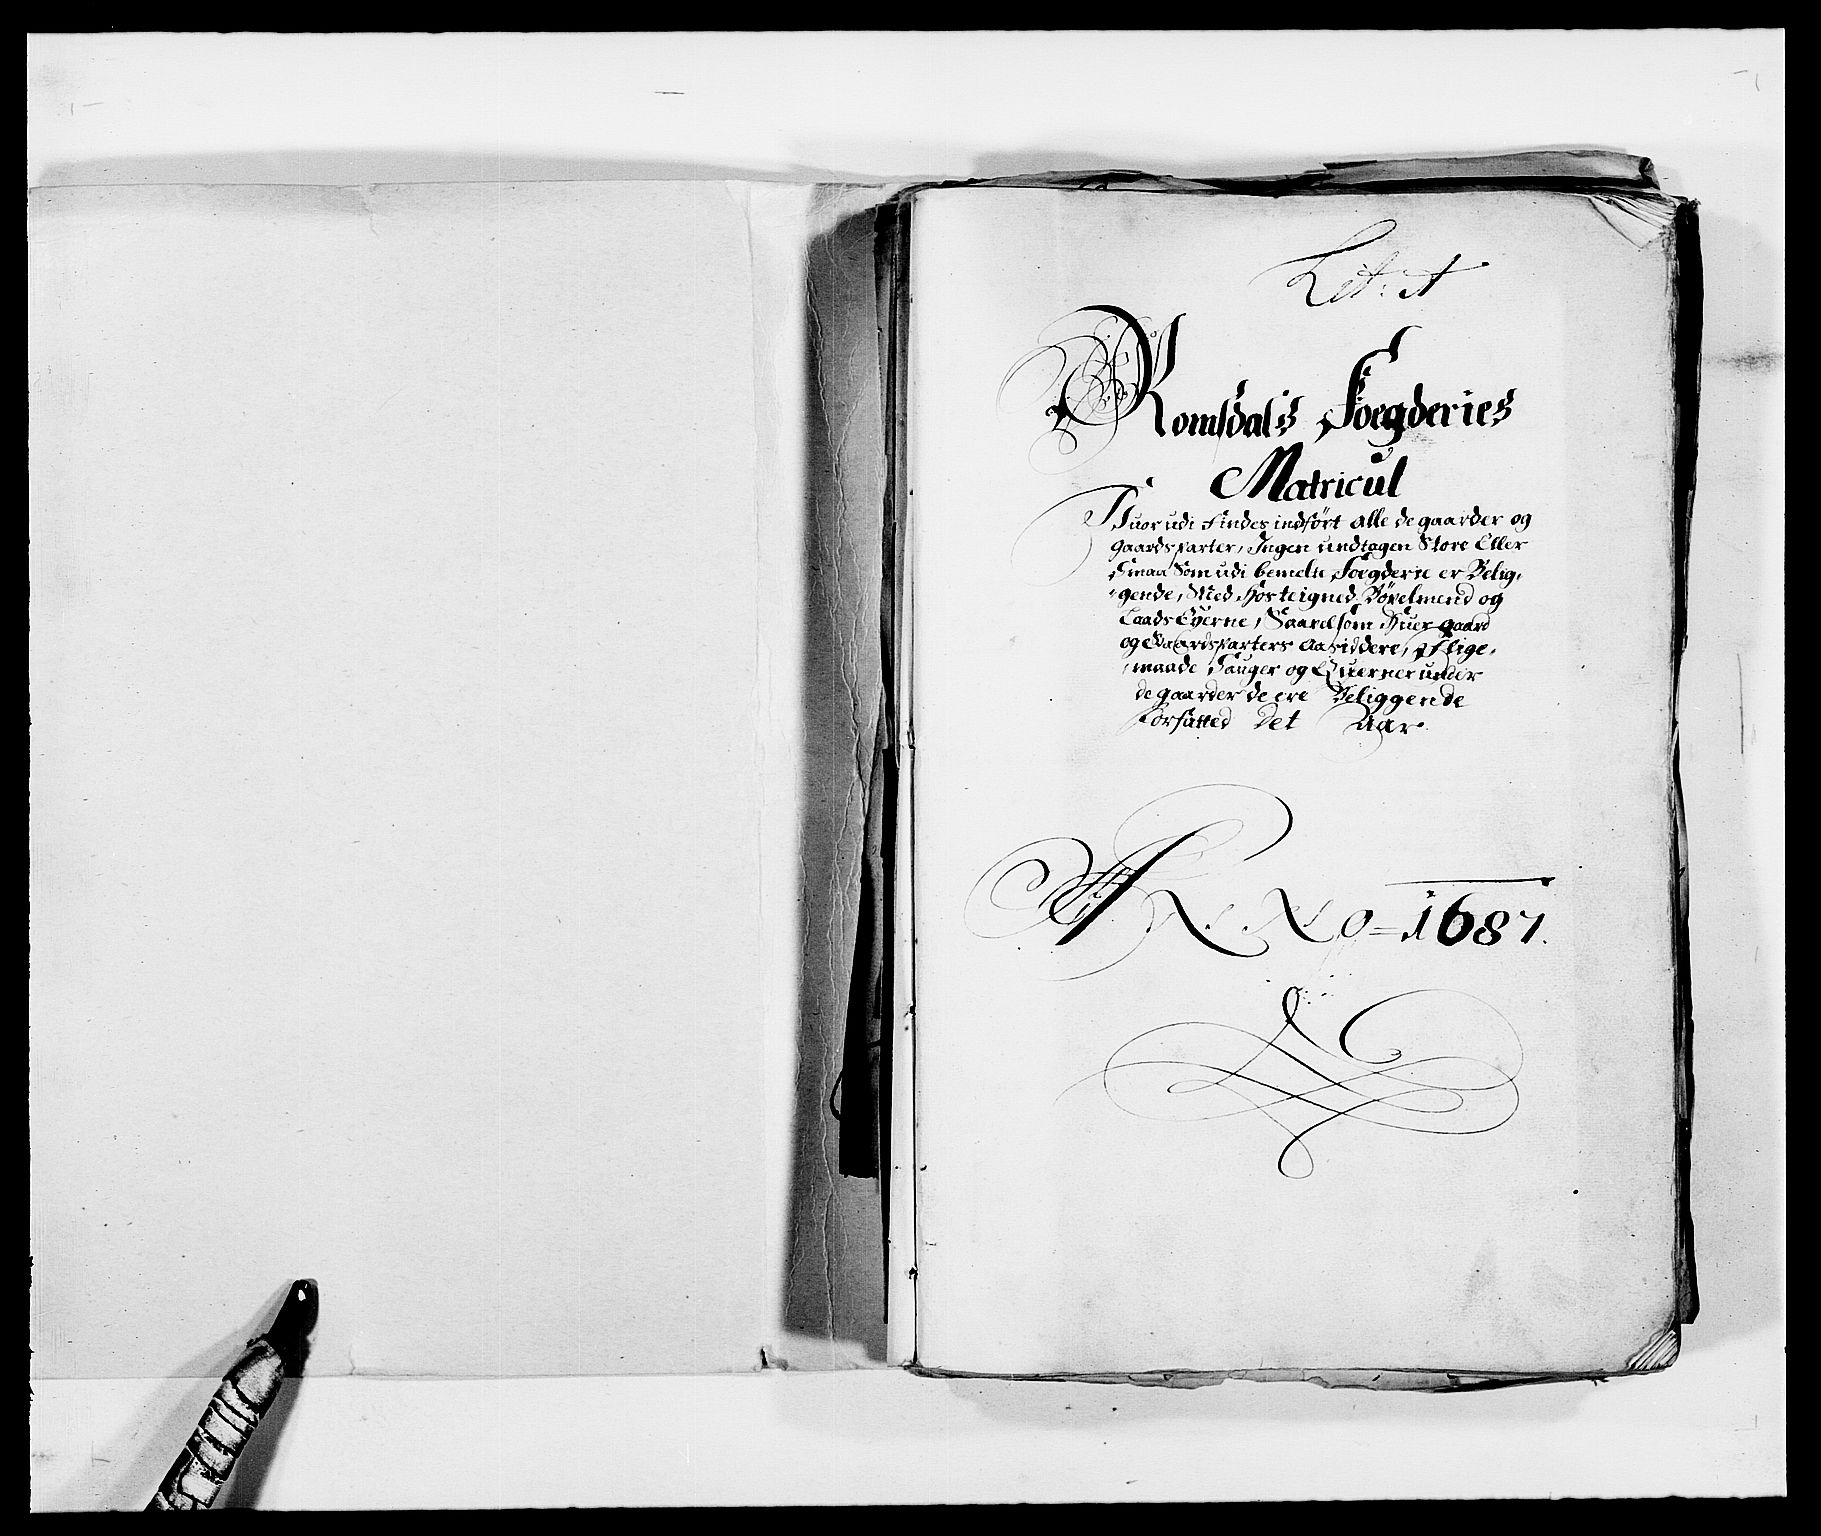 Lit: A
Romsdals Foegderies
Matricul
Huor udi Findes indført alle de gaarder og
gaardsparter, Ingen undtagen Store Eller
Smaa Som udi bemelte Foegderie er Belig-
-gende, Med Hosteigned Bøxelmend og
Laads Eyerne, Saavelsom Huer gaard
og Gaardsparters Aasiddere, J lige-
maade Sauger og Querner under
de gaarder de ere Beliggende
Forfatted Det Aar
ANNO=1687.